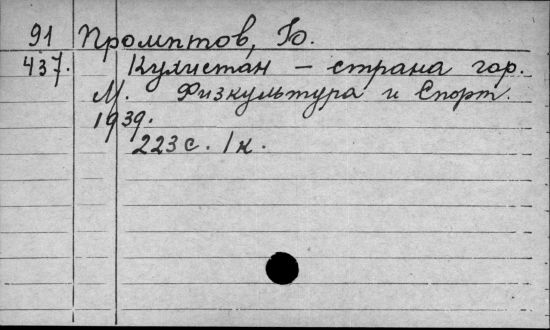 91 Промптов, Ю.
437. Кулистан – страна гор.
М. Физкультура и Спорт.
1939.
223 с. 1 к.